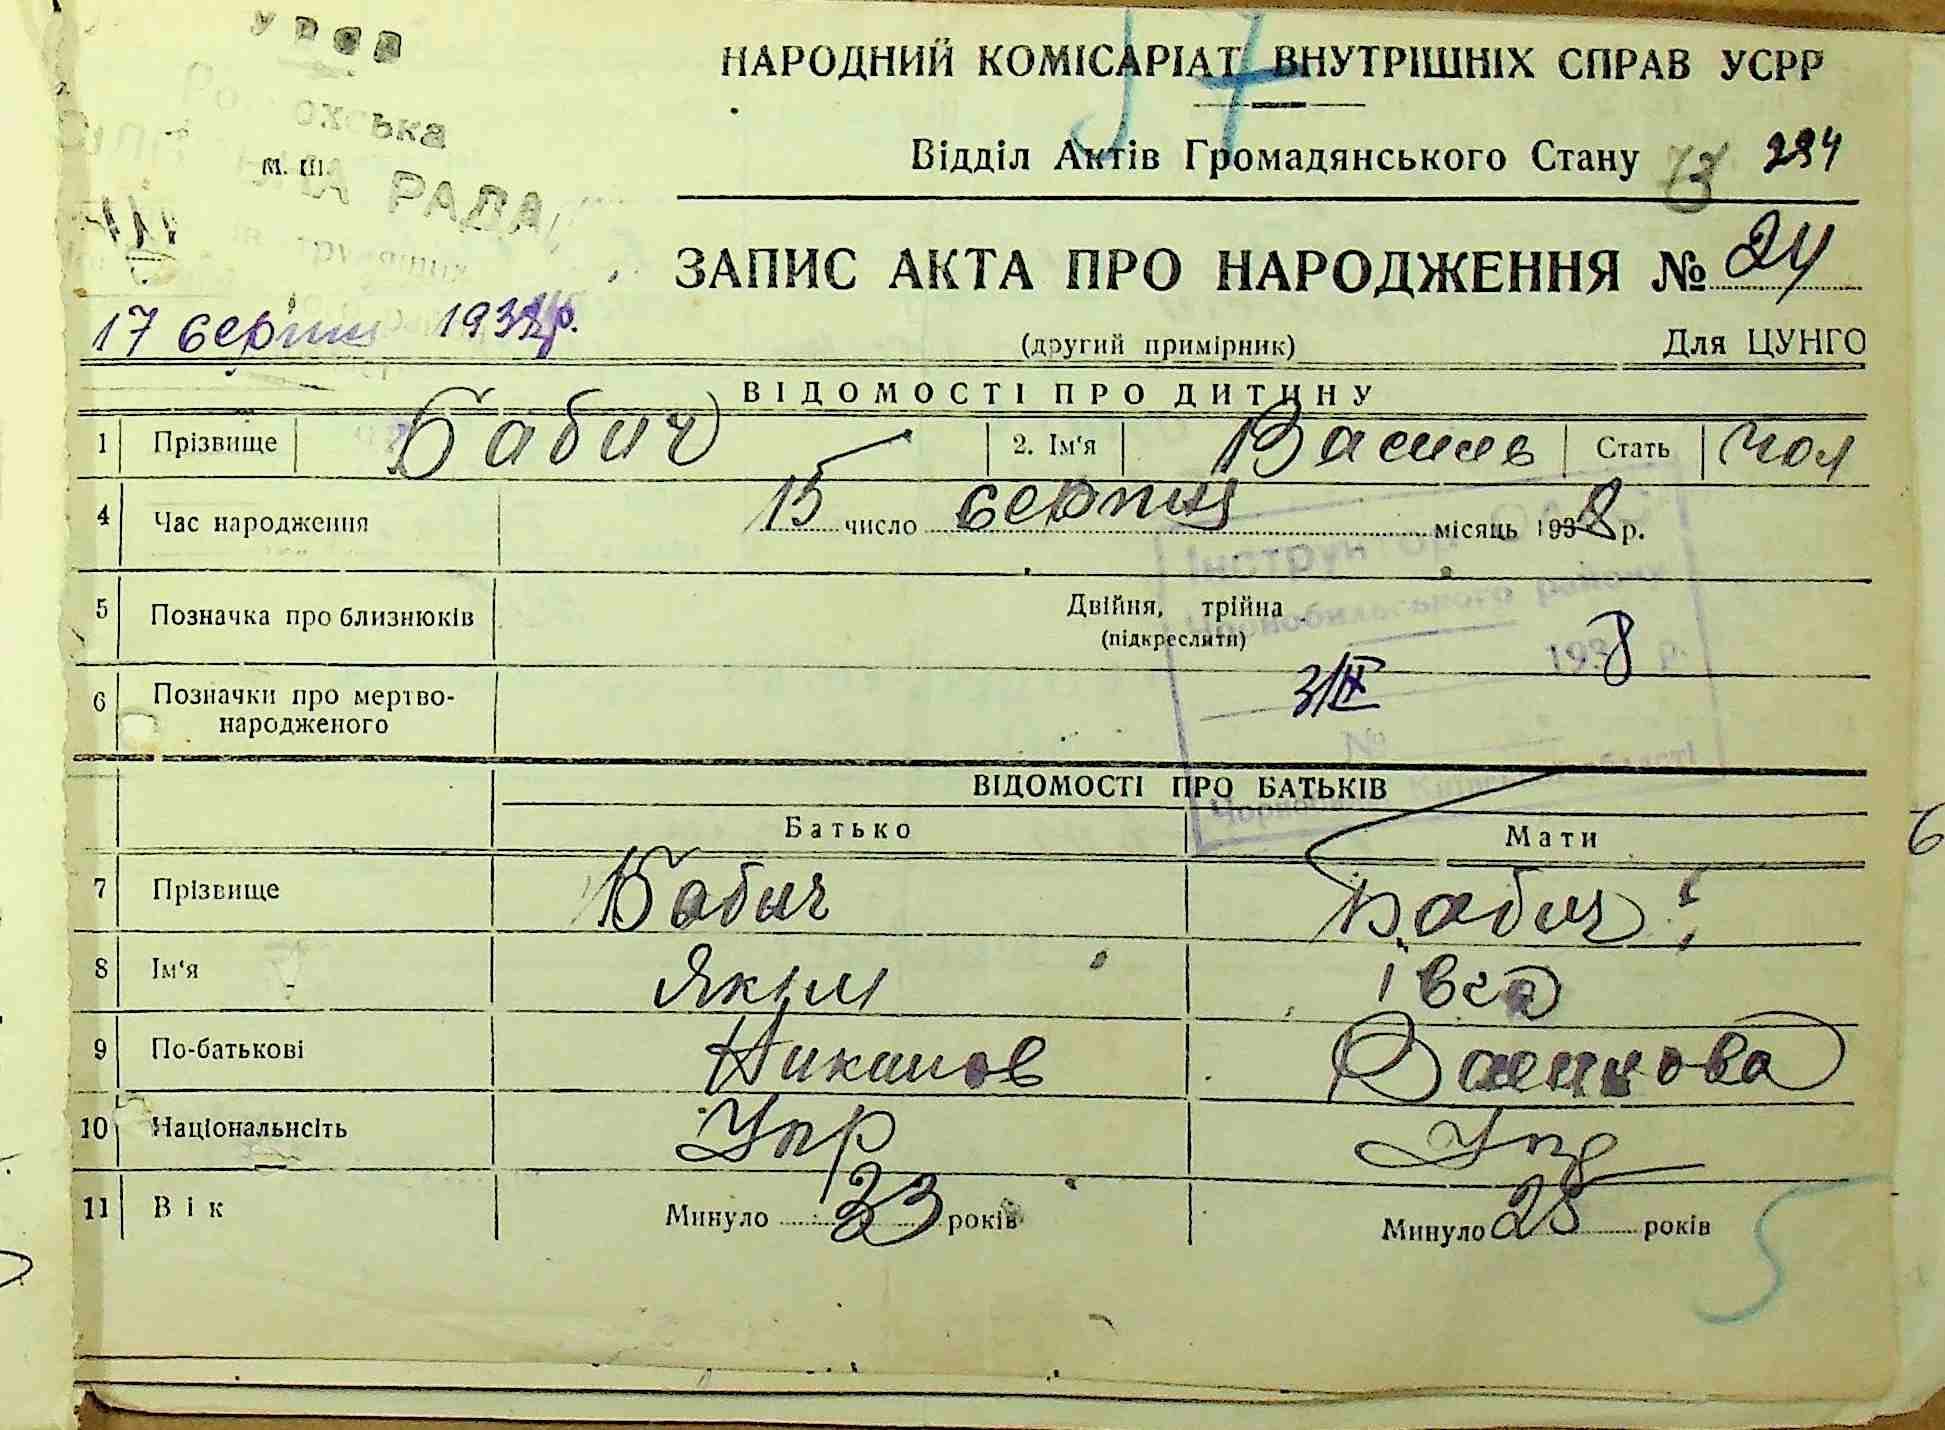 УРСР
НАРОДНИЙ КОМІСАРІАТ ВНУТРІШНІХ СПРАВ УСРР
57
ська
М. Ш.
РАДА
Відділ Актів Громадянського Стану 73 294
ЗАПИС АКТА ПРО НАРОДЖЕННЯ № 24
17 серпня 1938 р.
(другий примірник) Для ЦУНГО
ВІДОМОСТІ ПРО ДИТИНУ
1 Прізвище Бабич 2. Ім'я Василь Стать чол
4 Час народження 15 число серпня місяць 1938 р.
Інструктор
Чорнобильського району
1938 р.
3/IX
№
5 Позначка про близнюків Двійня, трійна
(підкреслити)
6 Позначки про мертво-
народженого
ВІДОМОСТІ ПРО БАТЬКІВ
Батько Мати
7 Прізвище Бабич Бабич
8 Ім'я Яким
9 По-батькові
10 Національнсіть Укр Укр
11 Вік Минуло 33 років Минуло 28 років
5